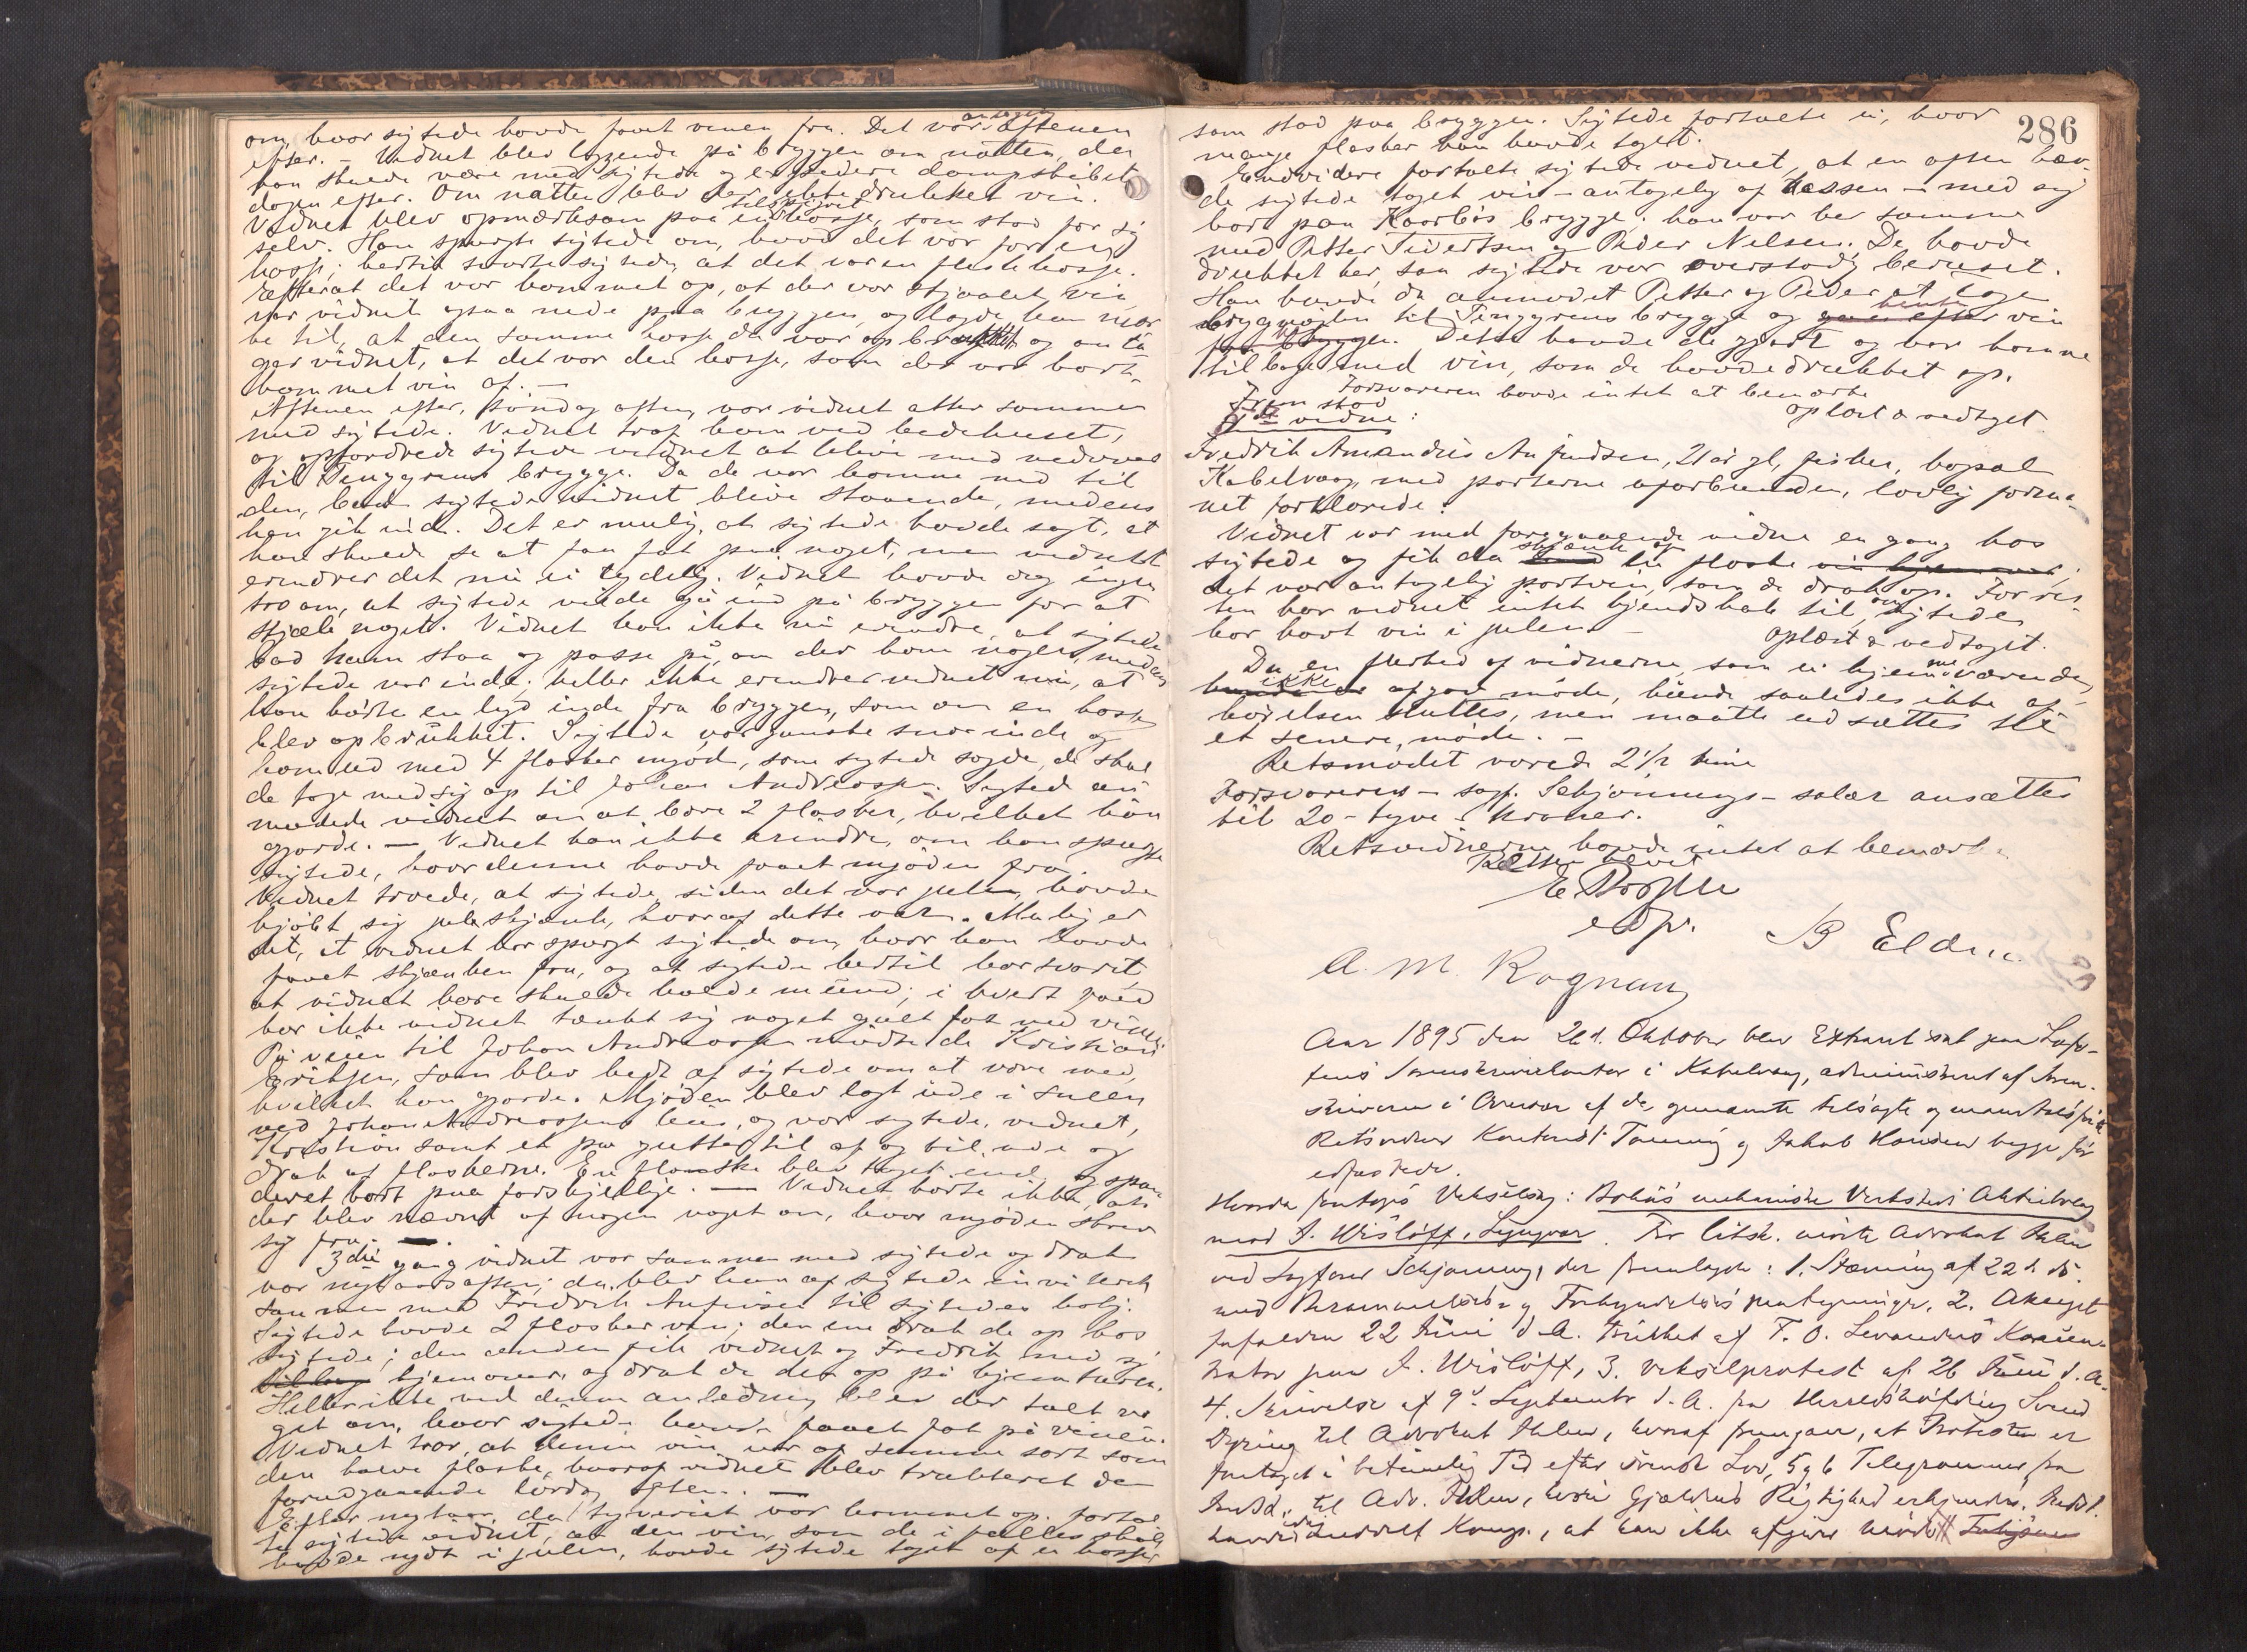 om, hvor sigtede havde faaet vinen fra. Det var aftenen
efter. – Vidnet blev liggende på bryggen om natten, da
han skulde være med sigtede og expedere dampskibet
dagen efter. Om natten blev der ikke drukket vin.
Vidnet blev opmærksom paa en tilspigret kasse, som stod for sig
selv. Han spurgte sigtede om, hvad det var for en
kasse; hertil svarte sigtede, at det var en flaskekasse.
Efterat det var kommet op, at der var stjaalet vin
var vidnet ogsaa nede paa bryggen, og lagde han mær
ke til, at den samme kasse da var opbrukket og anta
ger vidnet, at det var den kasse, som der var bort-
kommet vin af. —
Aftenen efter, søndag aften, var vidnet atter sammen
med sigtede. Vidnet traf ham ved bedehuset,
og opfordrede sigtede vidnet at blive med nedover
til Finggrens brygge. Da de var komne ned til
den, bad sigtede vidnet blive staaende, medens
han gik ind. Det er mulig, at sigtede havde sagt, at
han skulde se at faa fat paa noget, men vidnet
erindrer det nu ei tydelig. Vidnet havde dog ingen
tro om, at sigtede vilde gå ind på bryggen for at
stjæle noget. Vidnet kan ikke nu erindre, at sigtede
bad ham staa og passe på, om der kom nogen, medens
sigtede var inde; heller ikke erindrer vidnet nu, at
han hørte en lyd inde fra bryggen, som om en kasse
blev opbrukket. Sigtede var ganske snar inde og
kom ud med 4 flasker mjød, som sigtede sagde, de skul
de tage med sig op til Johan Andreassen. Sigtede an
modede vidnet om at bære 2 flasker, hvilket han
gjorde. — Vidnet kan ikke erindre, om han spurgte
sigtede, hvor denne havde faaet mjøden fra.
Vidnet troede, at sigtede, siden det var julen, havde
kjøbt sig juleskjænk, hvoraf dette var. Mulig er
det, at vidnet har spurgt sigtede om, hvor han havde
faaet skjænken fra, og at sigtede hertil har svaret,
at vidnet bare skulde holde mund; i hvert fald
har ikke vidnet tænkt sig noget galt fat med vinen.
På veien til Johan Andreassen mødte de Kristian
Eriksen, som blev bedt af sigtede om at være med,
hvilket han gjorde. Mjøden blev lagt ude i sneen
ved Johan Andreassens hus, og var sigtede, vidnet,
Kristian samt et par gutter til af og til ude og
drak af flaskerne. En flaske blev taget ind og span
deret bort paa forskjellige. — Vidnet hørte ikke, at
der blev nævnt af nogen noget om, hvor mjøden skrev
sig fra. —
3die gang vidnet var sammen med sigtede og drak
var nytaarsaften; da blev han af sigtede inviteret
sammen med Fredrik Anfindsen til sigtedes bolig.
Sigtede havde 2 flasker vin; den ene drak de op hos
sigtede; den anden fik vidnet og Fredrik med sig
hjemover, og drak de den op på hjemturen.
Heller ikke ved denne anledning blev der talt no
get om, hvor sigtede havde faaet fat på vinen.
Vidnet tror, at denne vin var af samme sort som
den halve flaske, hvoraf vidnet blev trakteret den
forudgaaende lørdag aften. —
Efter nytaar, da tyveriet var kommet op, fortal
te sigtede vidnet, at den vin, som de i fællesskab
havde nydt i julen, havde sigtede taget af en kasse
286
som stod paa bryggen. Sigtede fortalte ei, hvor
mange flasker han havde taget.
Endvidere fortalte sigtede vidnet, at en aften hav-
de sigtede taget vin – antagelig af kassen – med sig
bort paa Kaarbøs brygge; han var her sammen
med Petter Sivertsen og Peder Nelsen. De havde
drukket her, saa sigtede var overstadig beruset.
Han havde da anmodet Petter og Peder at tage
brygnøglen til Finggrens brygge og hente vin
på bryggen. Dette havde de gjort og var komne
tilbage med vin, som de havde drukket op.
Forsvareren havde intet at bemærke
oplæst & vedtaget.
Frem stod
7de vidne:
Fredrik Amandus Anfindsen, 21 år gl, fisker, bopæl
Kabelvaag, med parterne uforbunden, lovlig forma-
net forklarede:
Vidnet var med foregaaende vidne en gang hos
sigtede og fik da skjænk af en flaske vin hjemover;
det var antagelig portvin, som de drak op. For res-
ten har vidnet intet kjendskab til, om sigtede
har havt vin i julen. –
oplæst & vedtaget.
Da en flerhed af vidnerne, som ei hjemmeværende,
ikke afgav møde, kunde saaledes ikke af-
hørelsen sluttes, men maatte udsættes til
et senere møde. –
Retsmødet varede 2½ time
Forsvareren – sagf. Schjønnings – salær ansættes
til 20 – tyve – kroner.
Retsvidnerne havde intet at bemærke
Retten hævet
edfr.
B Eldnu.
A. M. Rognan
Aar 1895 den 26d. Oktober blev Extraret sat paa Lofo-
tens Sorenskriverkontor i Kabelvaag, administreret af Soren-
skriveren i Overvær af de, gunamte tilsagte og
Retsvidner Kontorist Tanning og Jakob Hansen begge før
edfæstede.
Hvorda foretoges Vekselsag: Bohus mekaniske Verksteds Aktiebolag
mod J. Wisløff, Lyngvær. For Citsk. mødte Advokat Ihlen
ved Sagfører Schjønning, der fremlagde: 1. Stævning af 22d ds.
med Berammelses- og Forkyndelsespaategninger, 2. Aksept
forfalden 22 Juni d. A. trukket af T. O. Levanders Konkur-
paa J. Wisløff, 3. Vekselprotest af 26 Juni d. A.
4. Skrivelse af 9d September d. A. fra Herredshøfding Svend
Dyring til Advokat Ihlen, hvoraf fremgaar, at Protesten er
foretaget i betimelig Tid efter svensk Lov, 5 og 6 Telegrammer fra
Indst. til Adv. Ihlen, hvori Gjældens Rigtighed erkjendes. Indst.
havde Komp., at han ikke afgiver Møde